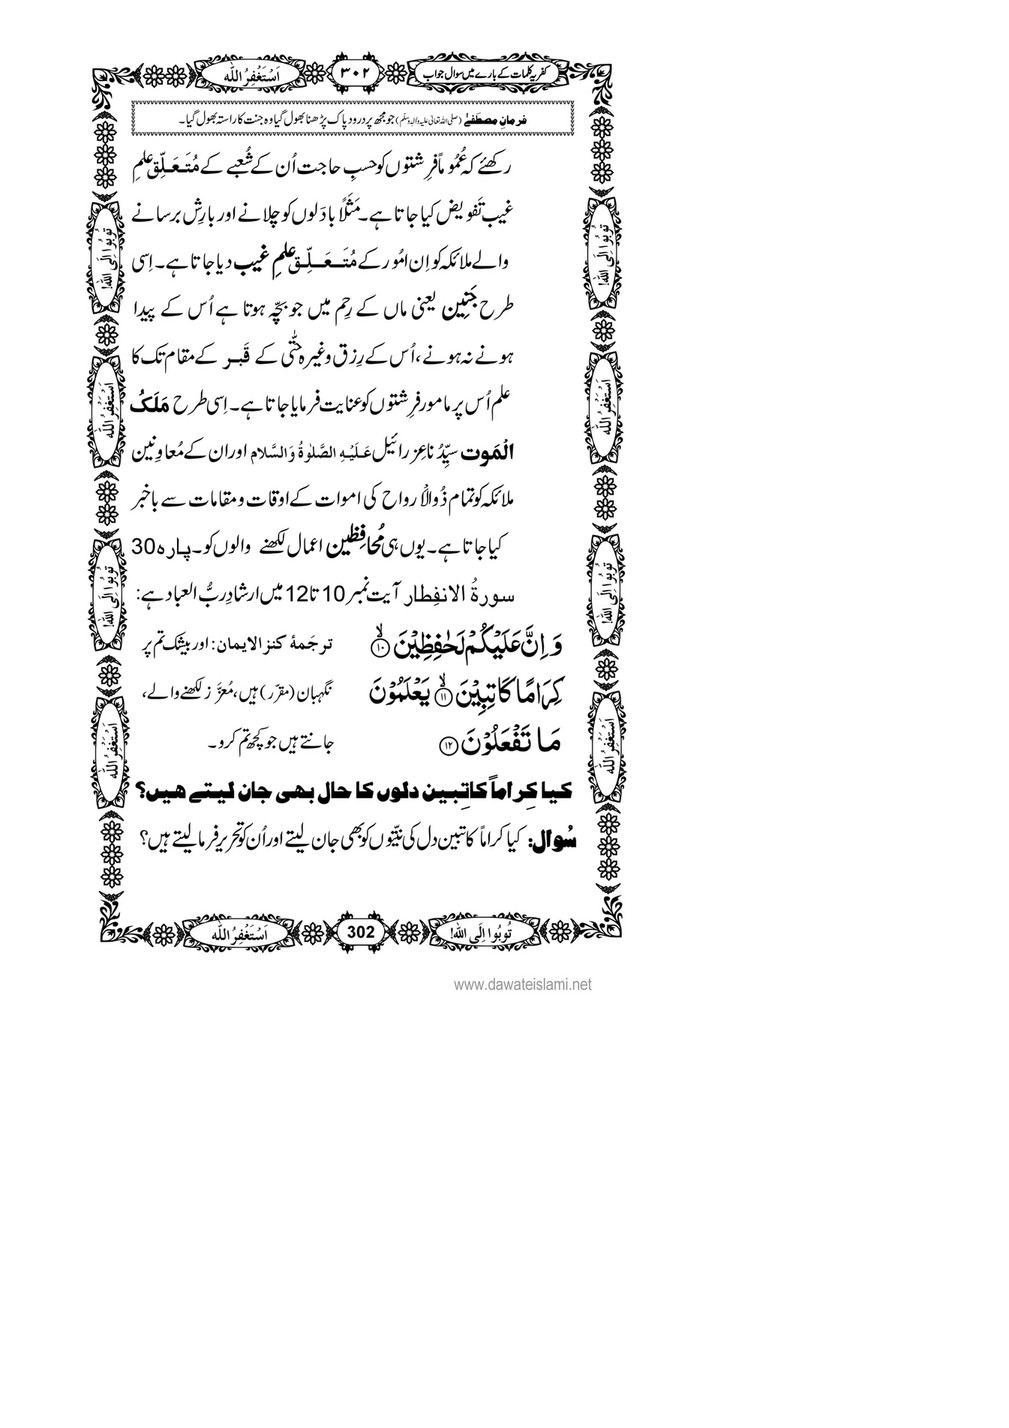 کفریہ کلمات کے بارے میں سوال جواب ۳۰۲ اَسْتَغْفِرُ اللّٰه
فرمانِ مصطفےٰ (صلی اللہ تعالیٰ علیہ والہ وسلّم) جو مجھ پر درود پاک پڑھنا بھول گیا وہ جنت کا راستہ بھول گیا۔
رکھئے کہ عُمُوماً فرِشتوں کو حسبِ حاجت اُن کے شُعبے کے مُتَعَلِّق علمِ
غیب تَفویض کیا جاتا ہے۔ مَثَلاً بادَلوں کو چلانے اور بارِش برسانے
والے ملائکہ کو اِن امُور کے مُتَعَلِّق علمِ غیب دیا جاتا ہے۔ اِسی
طرح جَنِین یعنی ماں کے رِحِم میں جو بچّہ ہوتا ہے اُس کے پیدا
ہونے نہ ہونے، اُس کے رِزق وغیرہ حتّٰی کے قَبر کے مقام تک کا
علم اُس پر مامور فرِشتوں کو عنایت فرمایا جاتا ہے۔ اِسی طرح مَلَکُ
الْمَوت سیِّدُنا عِزرائیل عَلَیْہِ الصَّلٰوۃُ وَالسَّلام اور ان کے مُعاوِنین
ملائکہ کو تمام ذُوالْاَرواح کی اموات کے اوقات و مقامات سے باخبر
کیا جاتا ہے۔ یوں ہی مُحافِظین اعمال لکھنے والوں کو۔ پارہ 30
سورۃُ الانفِطار آیت نمبر 10 تا 12 میں ارشادِ ربُّ العباد ہے:
وَ اِنَّ عَلَیْكُمْ لَحٰفِظِیْنَۙ﴿۱۰﴾ ترجَمۂ کنز الایمان: اور بیشک تم پر
كِرَامًا كَاتِبِیْنَۙ﴿۱۱﴾ یَعْلَمُوْنَ نگہبان (مقرّر) ہیں، مُعزَّز لکھنے والے،
مَا تَفْعَلُوْنَ﴿۱۲﴾ جانتے ہیں جو کچھ تم کرو۔
کیا کِراماً کاتِبین دلوں کا حال بھی جان لیتے ھیں؟
سُوال: کیا کراماً کاتبین دل کی نیّتوں کو بھی جان لیتے اور اُن کو تحریر فرما لیتے ہیں؟
تُوبُوا اِلَی اللّٰه!
اَسْتَغْفِرُ اللّٰه
تُوبُوا اِلَی اللّٰه!
اَسْتَغْفِرُ اللّٰه
تُوبُوا اِلَی اللّٰه!
اَسْتَغْفِرُ اللّٰه
تُوبُوا اِلَی اللّٰه!
اَسْتَغْفِرُ اللّٰه
تُوبُوا اِلَی اللّٰه! 302 اَسْتَغْفِرُ اللّٰه
www.dawateislami.net